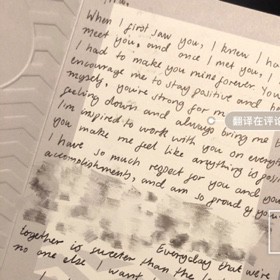 When I first saw you, I knew I ha
meet you, and once I met you, I
I had to make you mine forever. You
encourage me to stay positive and
myself, you're strong for m
feeling down and always bring me b
翻译在评论
I'm inspired to work with you on every
you make me feel like anything is
I have so much respect for you and you
accomplishments, and am so proud of you
Everyday that we're
together is sweeter than the
no one else I want